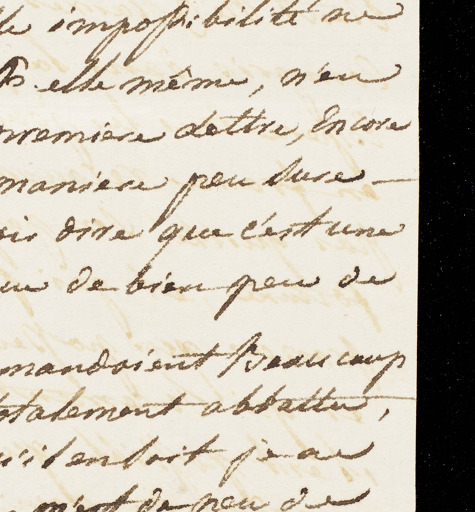 impossibilité ne
elle même, n'eu
premiere lettre, Encore
maniere peu sure —
dire que c'est une
de bien peu de
mandoient Beaucoup
totalement abbattu,
qu'il en soit je ne
m'est de peu de